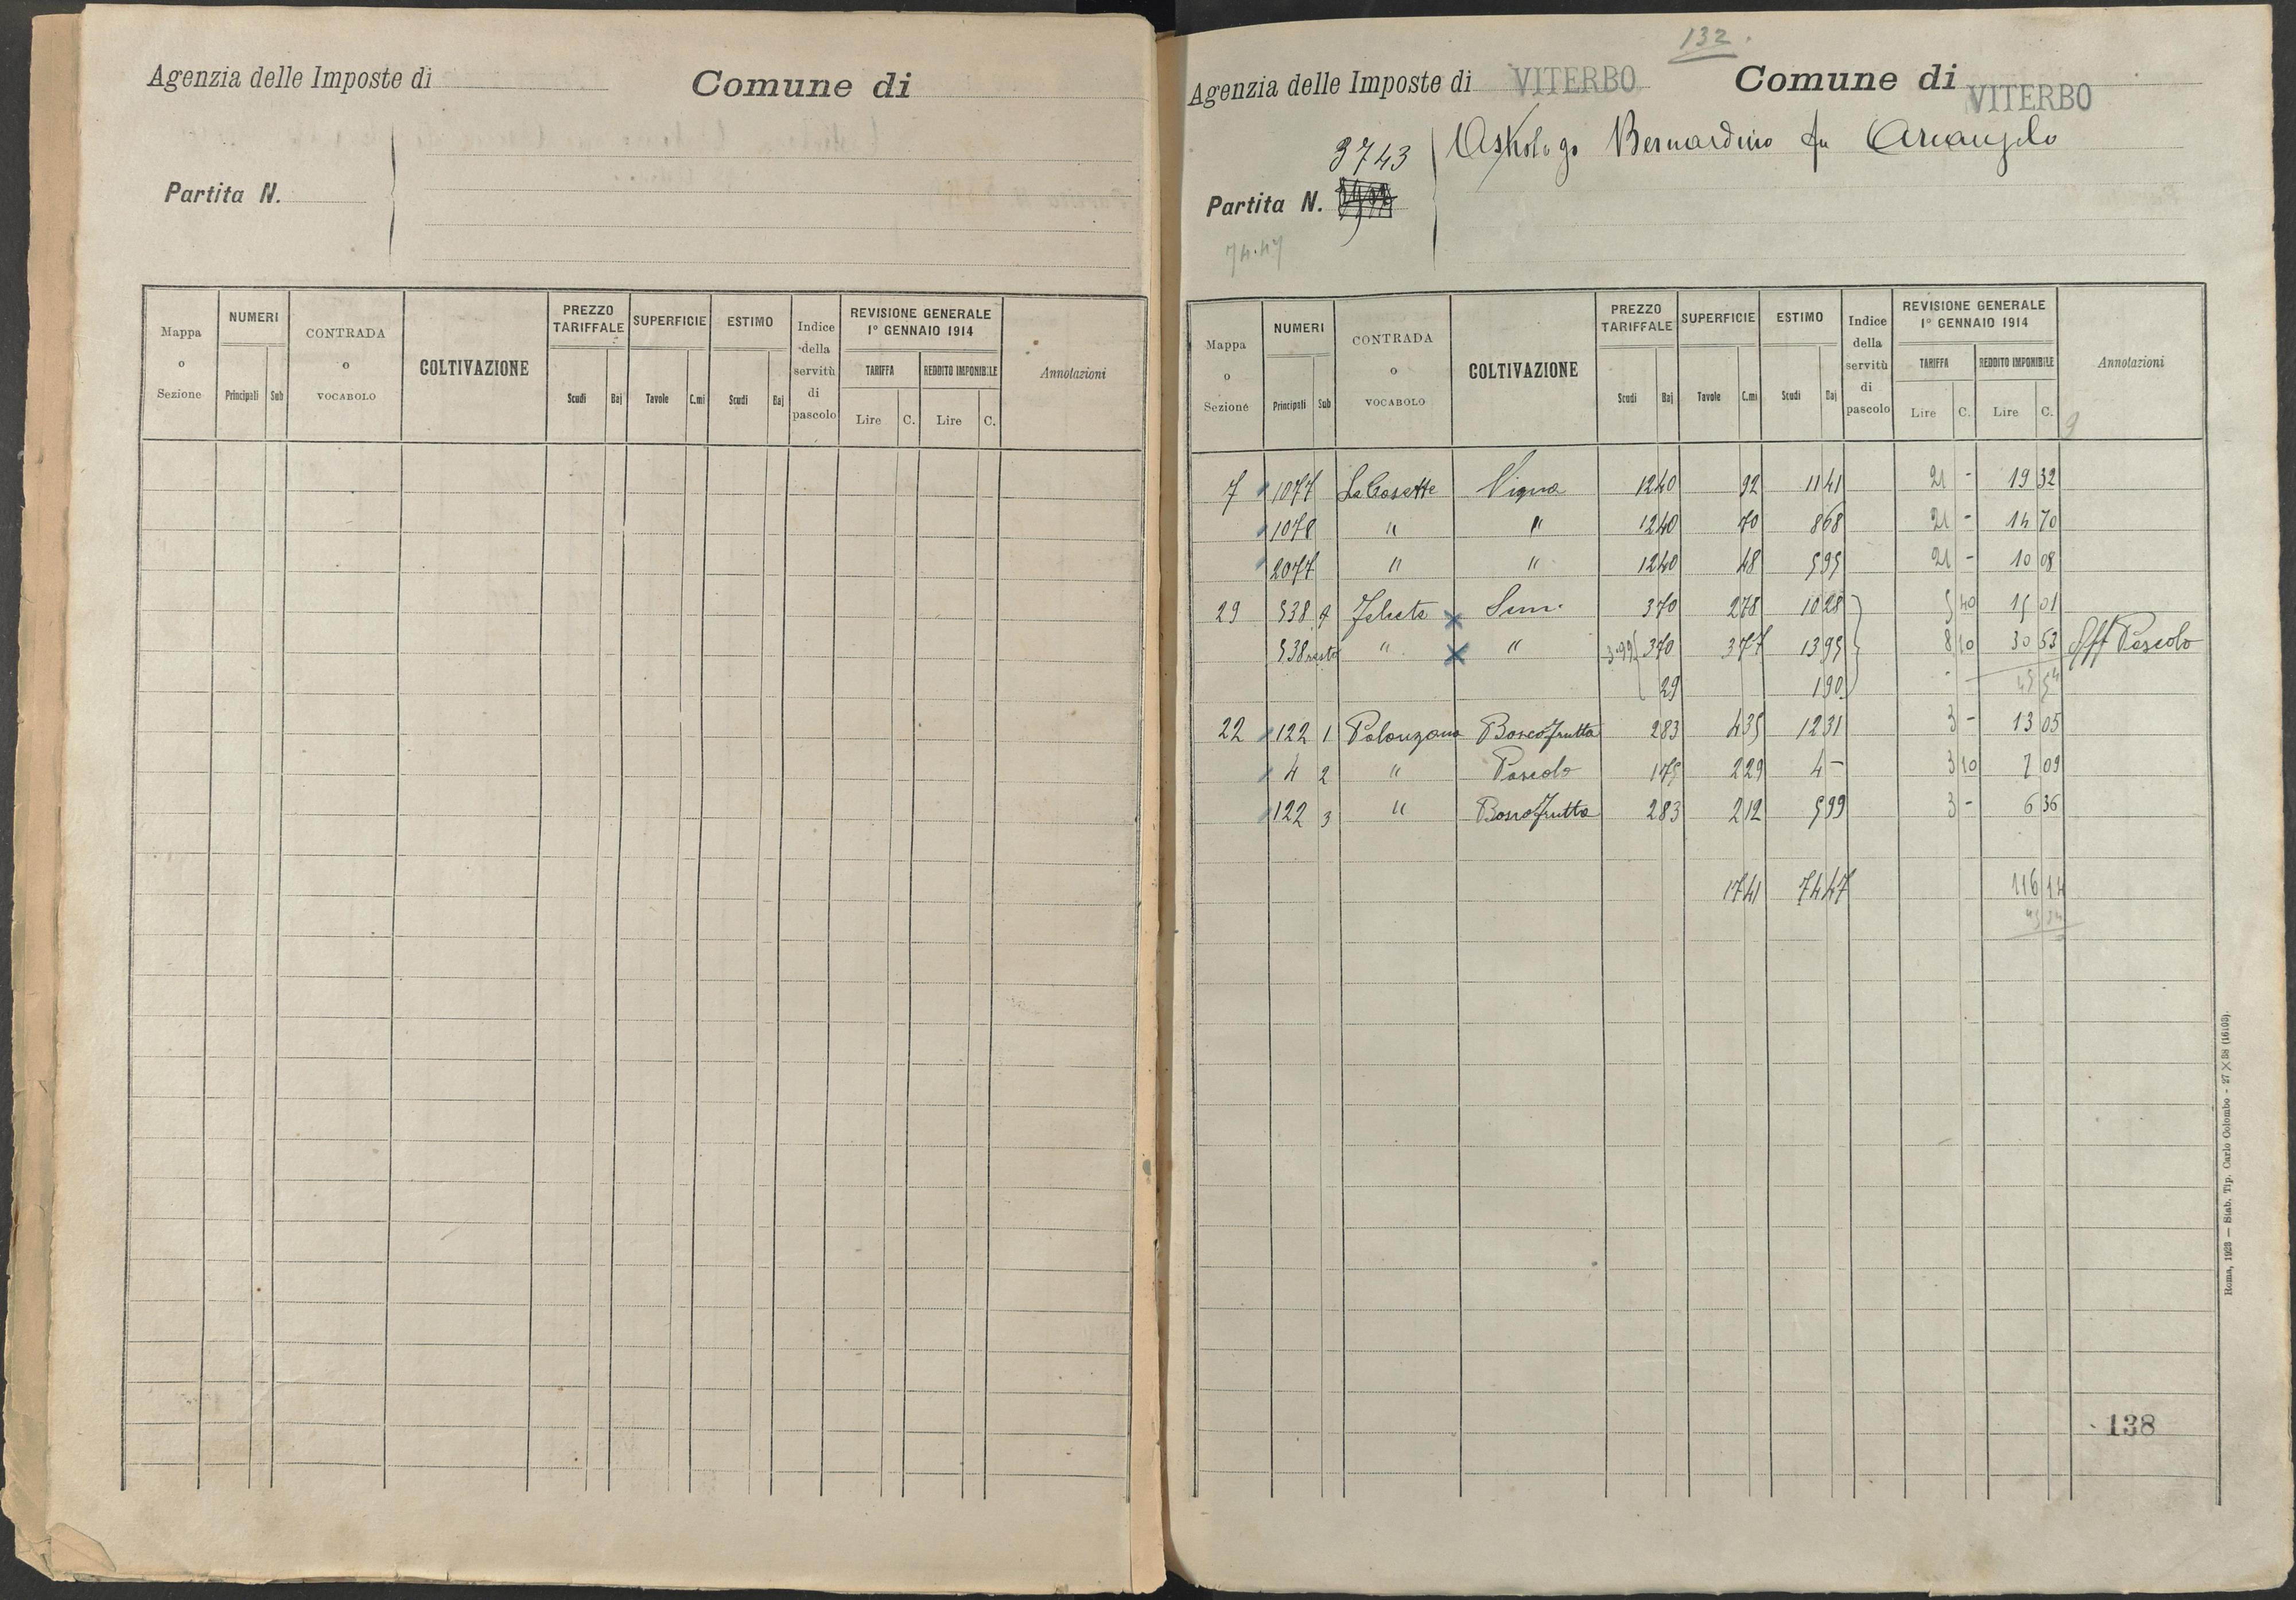 Agenzia delle Imposte di
Comune di
Partita N.
Mappa o Sezione
NUMERI
Principali Sub
CONTRADA o VOCABOLO
COLTIVAZIONE
PREZZO TARIFFALE
Scudi Baj
SUPERFICIE
Tavole C.mi
ESTIMO
Scudi Baj
Indice della servitù di pascolo
REVISIONE GENERALE 1° GENNAIO 1914
TARIFFA REDDITO IMPONIBILE
Lire C. Lire C.
Annotazioni
132.
Agenzia delle Imposte di VITERBO Comune di VITERBO
3743 Astrologo Bernardino fu Arcangelo
Partita N.
74.47
Mappa o Sezione
NUMERI
Principali Sub
CONTRADA o VOCABOLO
COLTIVAZIONE
PREZZO TARIFFALE
Scudi Baj
SUPERFICIE
Tavole C.mi
ESTIMO
Scudi Baj
Indice della servitù di pascolo
REVISIONE GENERALE 1° GENNAIO 1914
TARIFFA REDDITO IMPONIBILE
Lire C. Lire C.
Annotazioni
7 1077 Le Casette Vigna 12 40 92 11 41 21 - 19 32
1078 " " 12 40 70 8 68 21 - 14 70
2077 " " 12 40 48 5 95 21 - 10 08
29 538 Sem. 3 70 2 78 10 28 5 40 15 01
538 resto " " 3.99 3 70 3 77 13 95 8 10 30 53 Aff Pascolo
29 1 90 45 54
22 122 1 Palanzana Bosco frutta 2 83 4 35 12 31 3 - 13 05
4 2 " Pascolo 1 75 2 29 4 - 3 10 7 09
122 3 " Bosco frutta 2 83 2 12 5 99 3 - 6 36
17 41 74 47 116 14
45 54
138
Roma, 1923 — Stab. Tip. Carlo Colombo - 27 × 38 (16103).